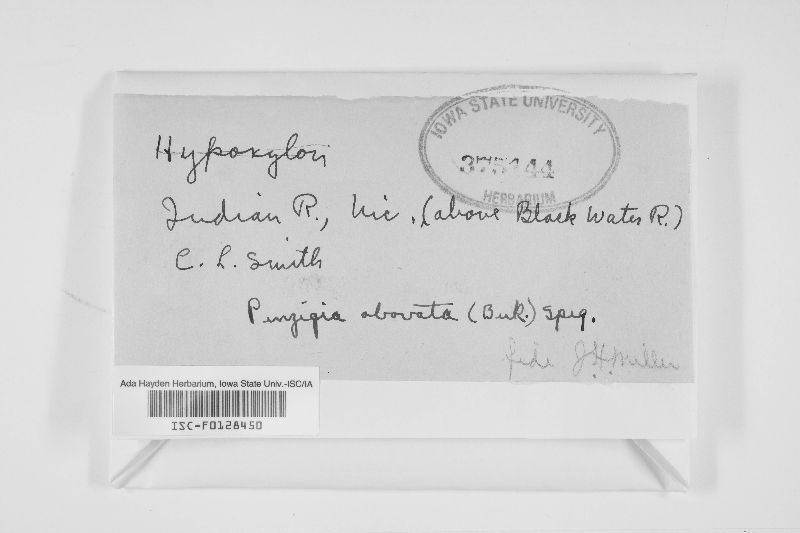 IOWA STATE UNIVERSITY
HERBARIUM
Hypoxylon
Indian R., Nic. (above Black Water R.)
C. L. Smith
Penzigia obovata (Berk.) Speg.
fide J.H. Miller
Ada Hayden Herbarium, Iowa State Univ.-ISC/IA
ISC-F0128450